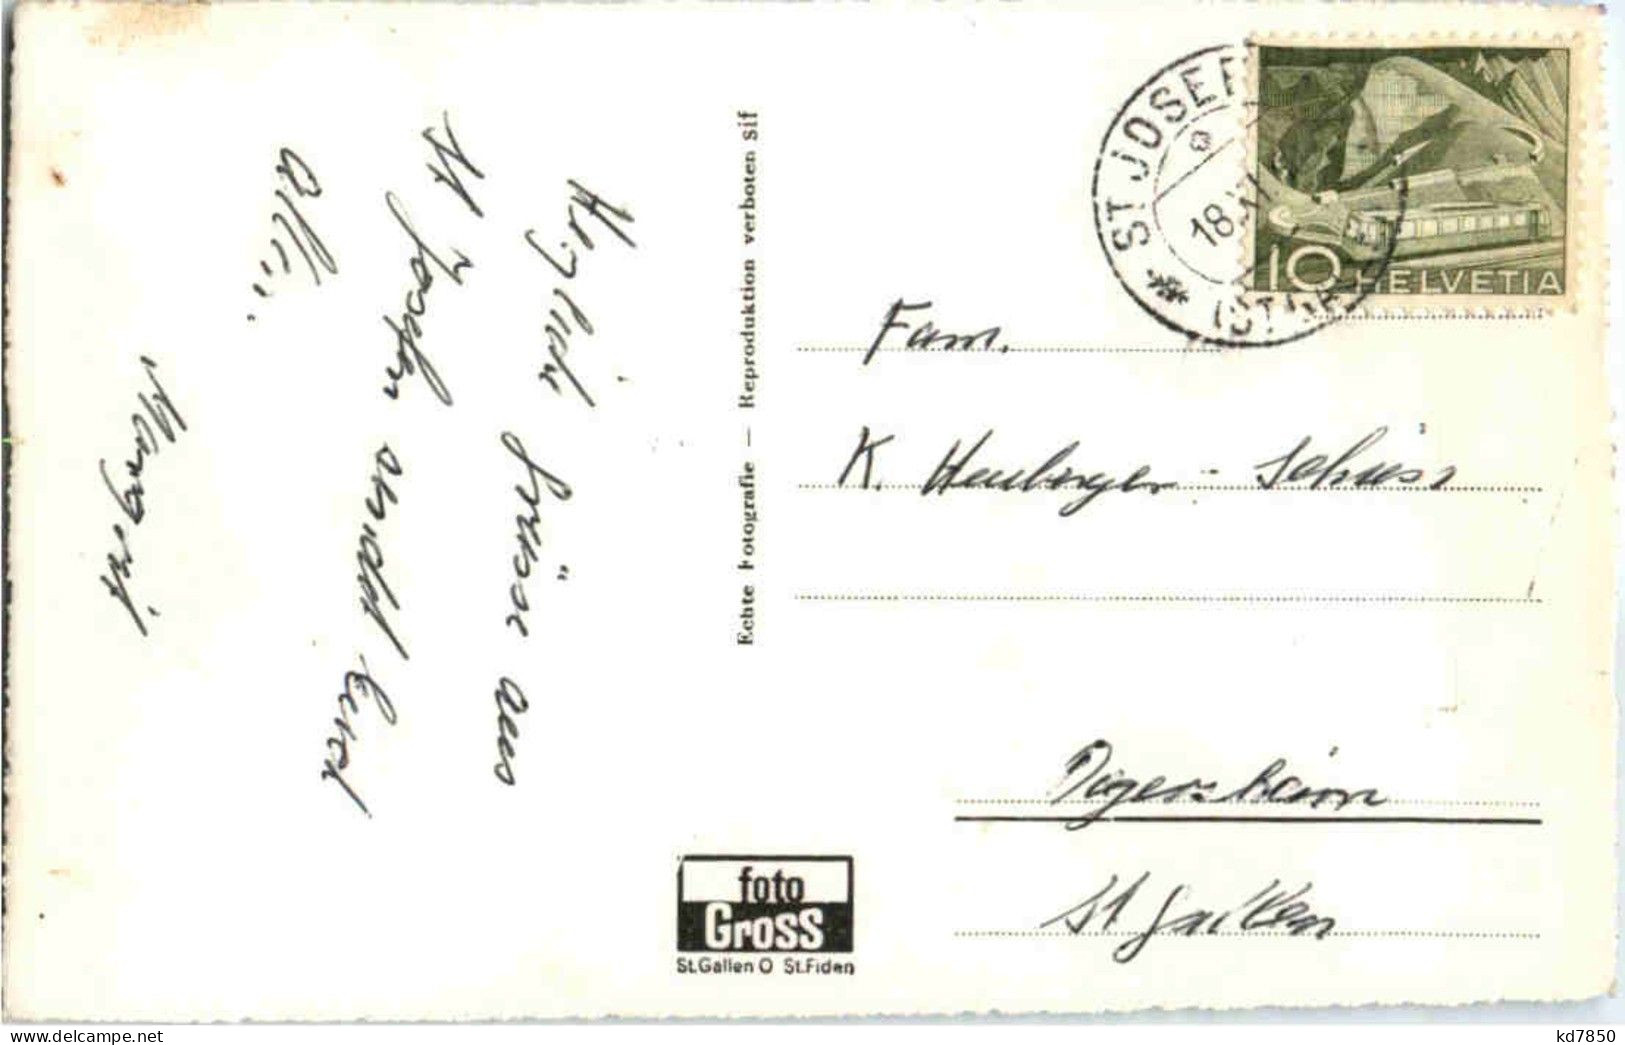 Herzliche Grüsse aus
St Josefen sendet Euch
allen.
Margrit
Echte Fotografie — Reproduktion verboten sif
foto
Gross
St.Gallen O St.Fiden
ST JOSEF
18. XI
(ST.G
10 HELVETIA
Fam.
K. Heuberger - Schiess
Degersheim
St Gallen
kd7850